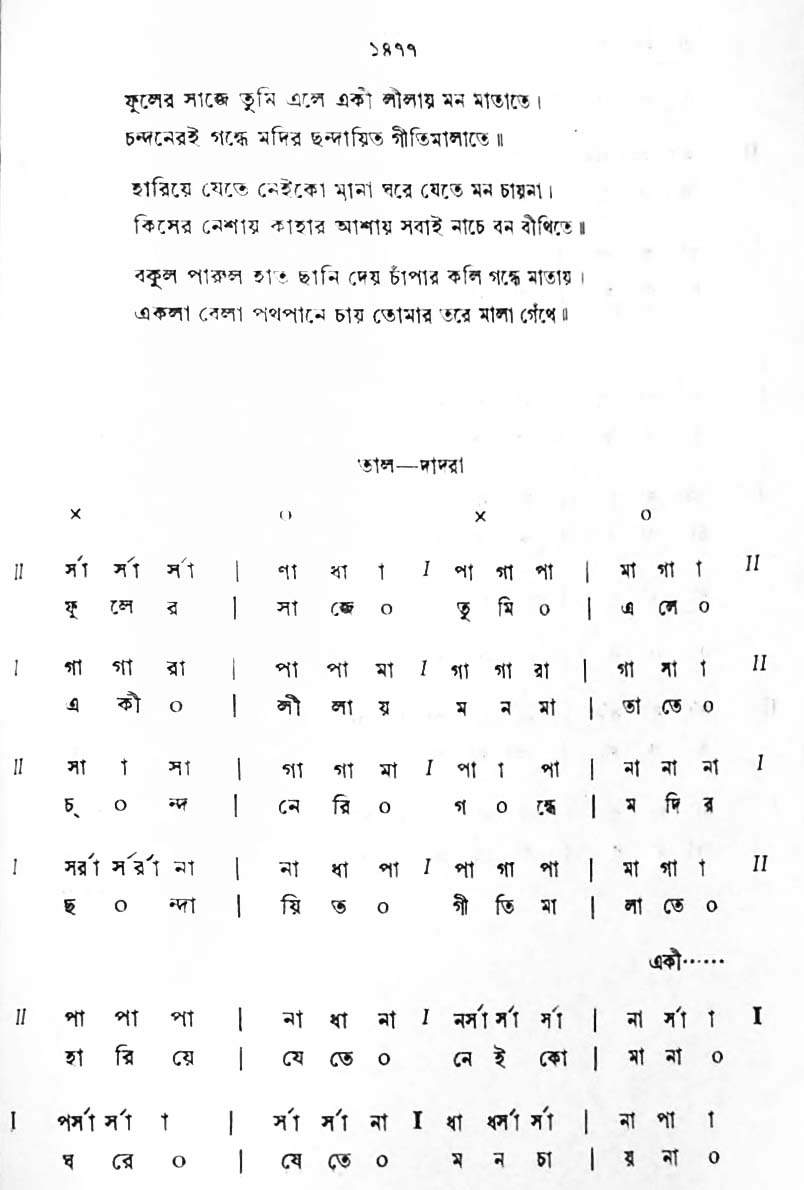 ১৪৭৭
ফুলের সাজে তুমি এলে একী লীলায় মন মাতাতে।
চন্দনেরই গন্ধে মদির ছন্দায়িত গীতিমালাতে॥
হারিয়ে যেতে নেইকো মানা ঘরে যেতে মন চায়না।
কিসের নেশায় কাহার আশায় সবাই নাচে বন বীথিতে॥
বকুল পারুল হাত ছানি দেয় চাঁপার কলি গন্ধে মাতায়।
একলা বেলা পথপানে চায় তোমার তরে মালা গেঁথে॥
তাল—দাদরা
× ০ × ০
II র্সা র্সা র্সা | ণা ধা া I পা গা পা | মা গা া II
ফু লে র | সা জে ০ তু মি ০ | এ লে ০
I গা গা রা | পা পা মা I গা গা রা | গা সা া II
এ কী ০ | লী লা য় ম ন মা | তা তে ০
II সা া সা | গা গা মা I পা া পা | না না না I
চ্ ০ ন্দ | নে রি ০ গ ০ ন্ধে | ম দি র
I সর্রা র্সর্রা না | না ধা পা I পা গা পা | মা গা া II
ছ ০ ন্দা | য়ি ত ০ গী তি মা | লা তে ০
একী······
II পা পা পা | না ধা না I নর্সা র্সা র্সা | না র্সা া I
হা রি য়ে | যে তে ০ নে ই কো | মা না ০
I পর্সা র্সা া | র্সা র্সা না I ধা ধর্সা র্সা | না পা া
ঘ রে ০ | যে তে ০ ম ন চা | য় না ০